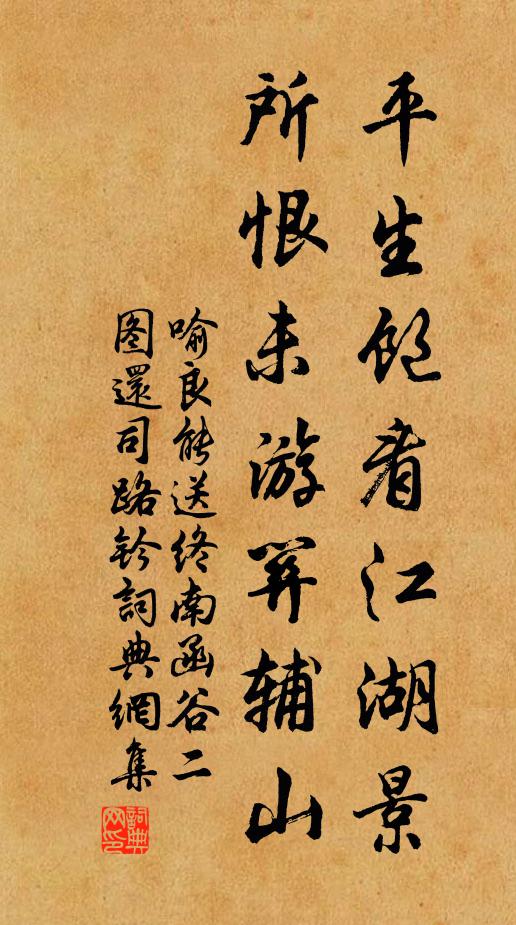 平生饱看江湖景
所恨未游关辅山
喻良能送终南函谷二
图還司路钤詞典網集
詞典网印